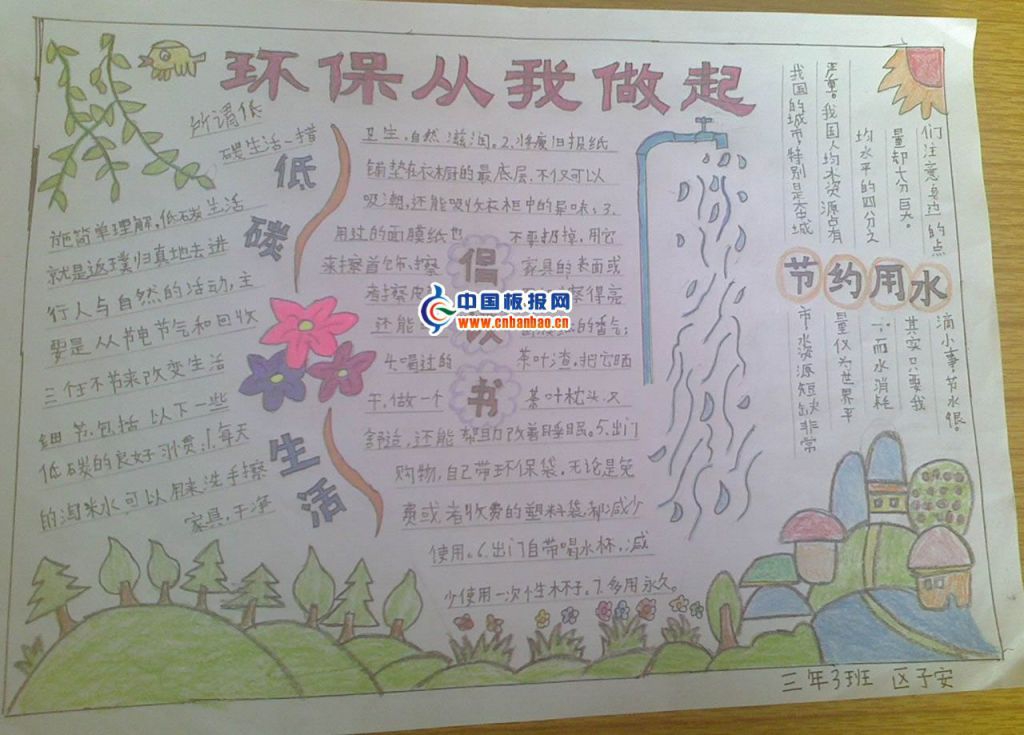 环保从我做起
低碳生活
所谓低
碳生活~措
施简单理解,低碳生活
就是返璞归真地去进
行人与自然的活动,主
要是从节电节气和回收
三个不节来改变生活
细节,包括 以下一些
低碳的良好习惯:1.每天
的淘米水可以用来洗手擦
家具,干净
倡议书
卫生,自然滋润。2.将废旧报纸
铺垫在衣橱的最底层,不仅可以
吸潮,还能吸收衣柜中的异味;3.
用过的面膜纸也 不要扔掉,用它
来擦首饰、擦 家具的表面或
者擦皮 擦得亮
还能 的香气;
4.喝过的 茶叶渣,把它晒
干,做一个 茶叶枕头,又
舒适,还能帮助改善睡眠。5.出门
购物,自己带环保袋,无论是免
费或者收费的塑料袋,都减少
使用。6.出门自带喝水杯,减
少使用一次性杯子。7.多用永久。
节约用水
我国的城市,特别是大城
市,水资源短缺非常
严重。我国人均水资源占有
量仅为世界平
均水平的四分之
一。而水消耗
量却十分巨大。
其实只要我
们注意身边的点
滴小事,节水很。
中国板报网
www.cnbanbao.cn
三年3班 区子安